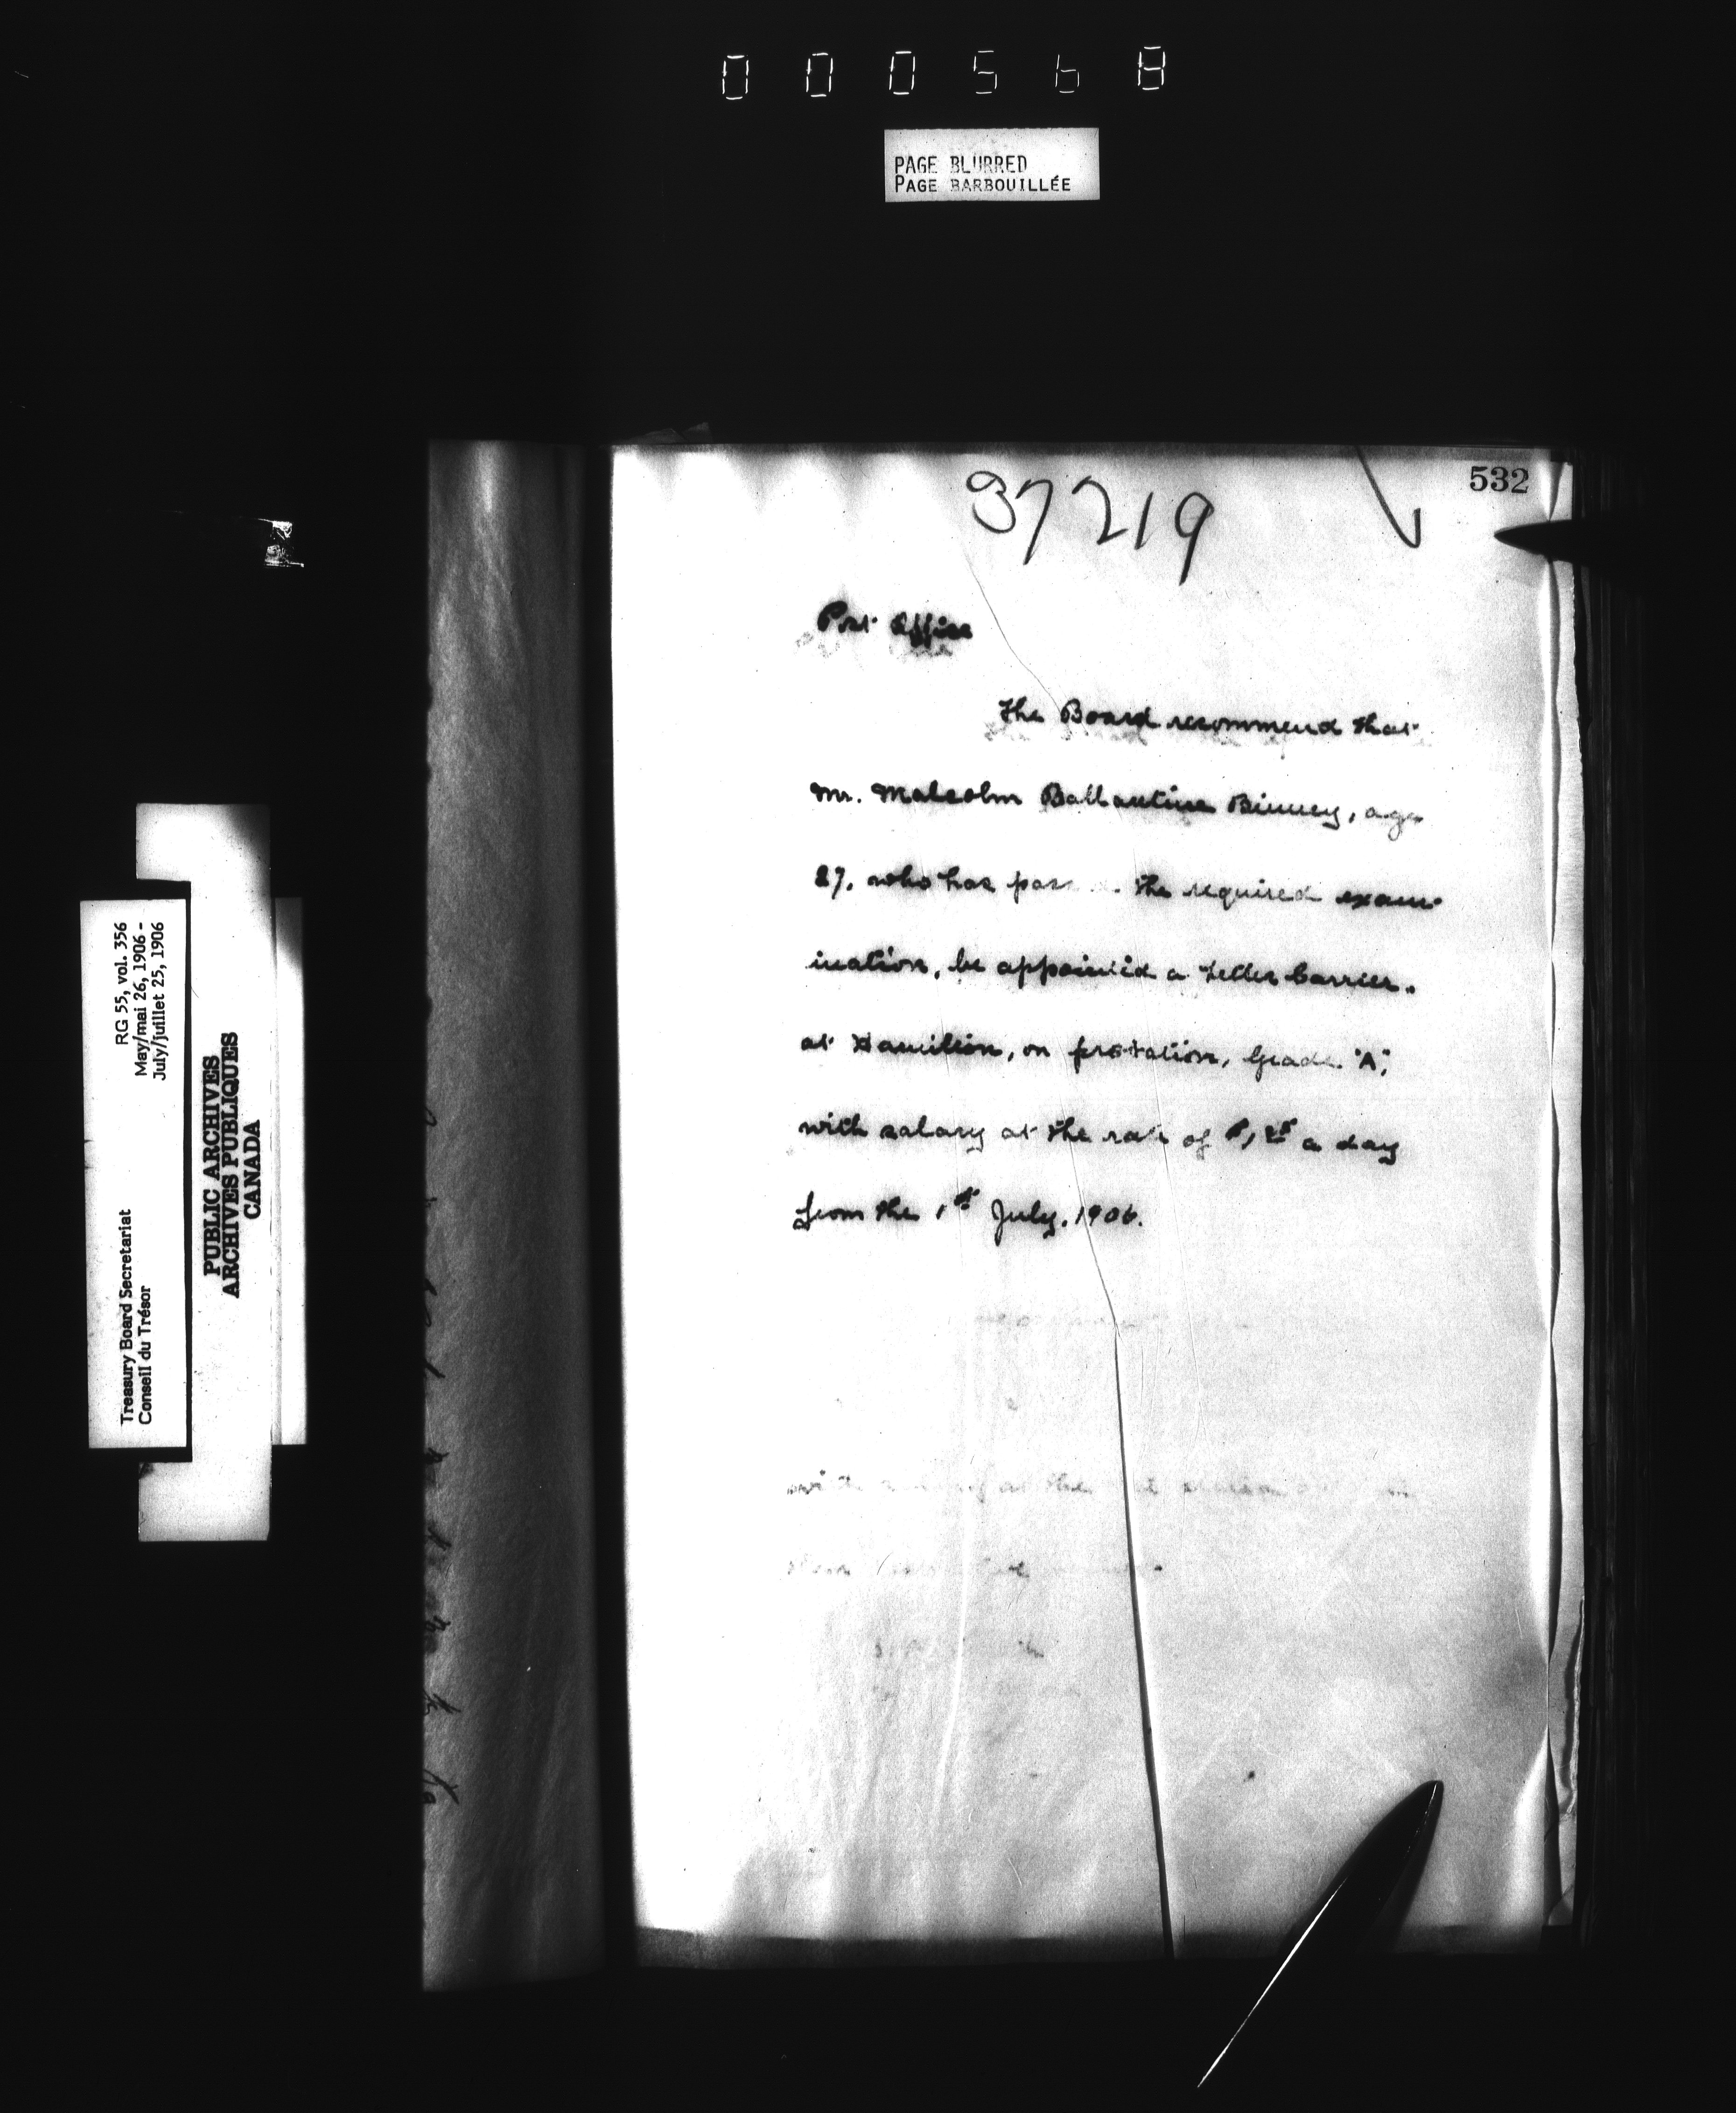 000568
PAGE BLURRED
PAGE BARBOUILLÉE
532
37219
Post Office
The Board recommend that
Mr. Malcolm Ballantine Binney, age
27, who has the required exam-
ination, be appointed a Letter Carrier.
at Hamilton, on probation, Grade "A",
with salary at the rate of a day
from the 1st July, 1906.
RG 55, vol. 356
May/mai 26, 1906 -
July/juillet 25, 1906
Treasury Board Secretariat
Conseil du Trésor
PUBLIC ARCHIVES
ARCHIVES PUBLIQUES
CANADA